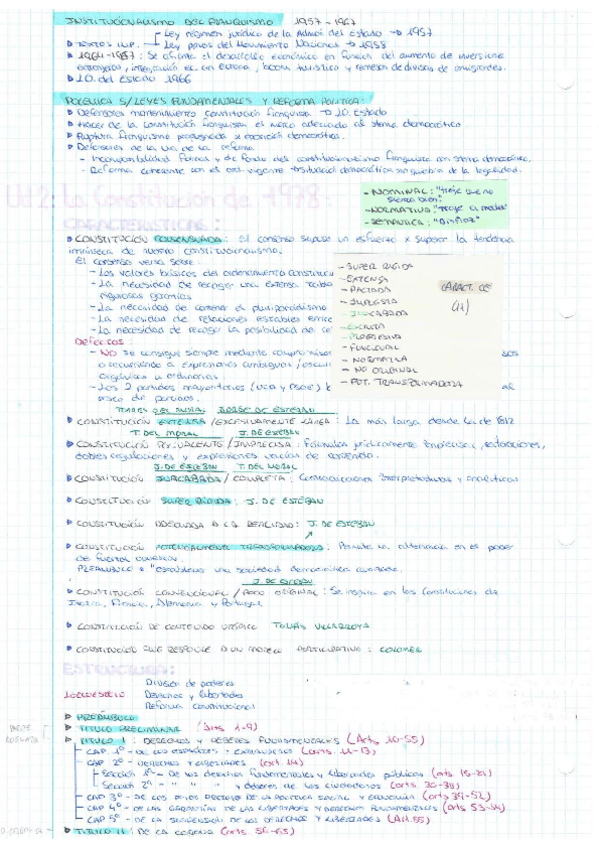 INSTITUCIONALISMO DEL FRANQUISMO 1957 - 1967
TEXTOS IMP. Ley régimen jurídico de la Admon del estado → 1957
Ley ppios del Movimiento Nacional → 1958
1964-1967: Se afianza el desarrollo económico en función del aumento de inversiones
extranjeras, integración ec. en Europa, boom turístico y remesas de divisas de emigrantes.
LO. del estado 1966
POLEMICA S/LEYES FUNDAMENTALES Y REFORMA POLITICA:
Defensores mantenimiento constitución franquista → LO. Estado
Hacer de la constitución franquista el marco adecuado al sistema democrático
Ruptura franquismo propugnada x oposición democrática.
Defensores de la vía de la reforma
- Incompatibilidad formal y de fondo del constitucionalismo franquista con sistema democrático.
- Reforma coherente con el ord. vigente transitando democrática sin quiebra de la legalidad.
Ud 2: La Constitución de 1978:
- NOMINAL: "traje que no sienta bien"
- NORMATIVA: "traje a medida"
- SEMANTICA: "Disfraz"
CARACTERISTICAS:
CONSTITUCIÓN CONSENSUADA: El consenso supuso un esfuerzo x superar la tendencia
intrínseca de nuestro constitucionalismo.
El consenso versa sobre:
- Los valores básicos del ordenamiento constituc
- La necesidad de recoger una extensa tabla
rigurosas garantías
- La necesidad de contener el pluripartidismo
- La necesidad de relaciones estables entre
- La necesidad de recoger la posibilidad de
Defectos:
- No se consigue siempre mediante compromisos
o recurriendo a expresiones ambiguas
orgánicas u ordinarias.
- Los 2 partidos mayoritarios (UCD y PSOE)
arco de partidos.
- SUPER RIGIDA
- EXTENSA
- PACTADA
- IMPUESTA
- INACABADA
- ESCRITA
- FUNCIONAL
- NORMATIVA
- NO ORIGINAL
- POT. TRANSFORMADORA
CARACT. CE
(11)
TOMAS DEL MORAL JORGE DE ESTEBAN
CONSTITUCIÓN EXTENSA / EXCESIVAMENTE LARGA: La más larga desde la de 1812
T. DEL MORAL J. DE ESTEBAN
CONSTITUCIÓN POLIVALENTE / IMPRECISA: Fórmulas jurídicamente imprecisas,
dobles regulaciones y expresiones vacías de contenido.
J. DE ESTEBAN T. DEL MORAL
CONSTITUCIÓN INACABADA / COMPLETA:
CONSTITUCIÓN SUPER RIGIDA: J. DE ESTEBAN
CONSTITUCIÓN ADECUADA A LA REALIDAD: J. DE ESTEBAN
CONSTITUCIÓN POTENCIALMENTE TRANSFORMADORA: Permite la alternancia en el poder
de fuerzas
PREAMBULO: "establecer una sociedad democrática avanzada.
J. DE ESTEBAN
CONSTITUCIÓN CONVENCIONAL / POCO ORIGINAL: Se inspira en las constituciones de
Italia, Francia, Alemania y Portugal.
CONSTITUCIÓN DE CONTENIDO UTÓPICO TOMÁS VILLARROYA
CONSTITUCIÓN QUE RESPONDE A UN MODELO PARTICIPATIVO: COLOMER
ESTRUCTURA:
División de poderes
Derechos y libertades
Reforma constitucional
PREÁMBULO
TITULO PRELIMINAR (Arts. 1-9)
TITULO I: DERECHOS Y DEBERES FUNDAMENTALES (Arts 10-55)
CAP. 1º - DE LOS ESPAÑOLES Y EXTRANJEROS (arts. 11-13)
CAP 2º - DERECHOS Y LIBERTADES (art. 14)
Sección 1º - De los derechos fundamentales y libertades públicas (arts 15-29)
Sección 2º - " " " y deberes de los ciudadanos (arts 30-38)
CAP 3º - DE LOS PPIOS RECTORES DE LA POLÍTICA SOCIAL Y ECONOMICA (arts 39-52)
CAP 4º - DE LAS GARANTÍAS DE LAS LIBERTADES Y DERECHOS FUNDAMENTALES (arts 53-54)
CAP 5º - DE LA SUSPENSIÓN DE LOS DERECHOS Y LIBERTADES (Art. 55)
TITULO II: DE LA CORONA (arts 56-65)